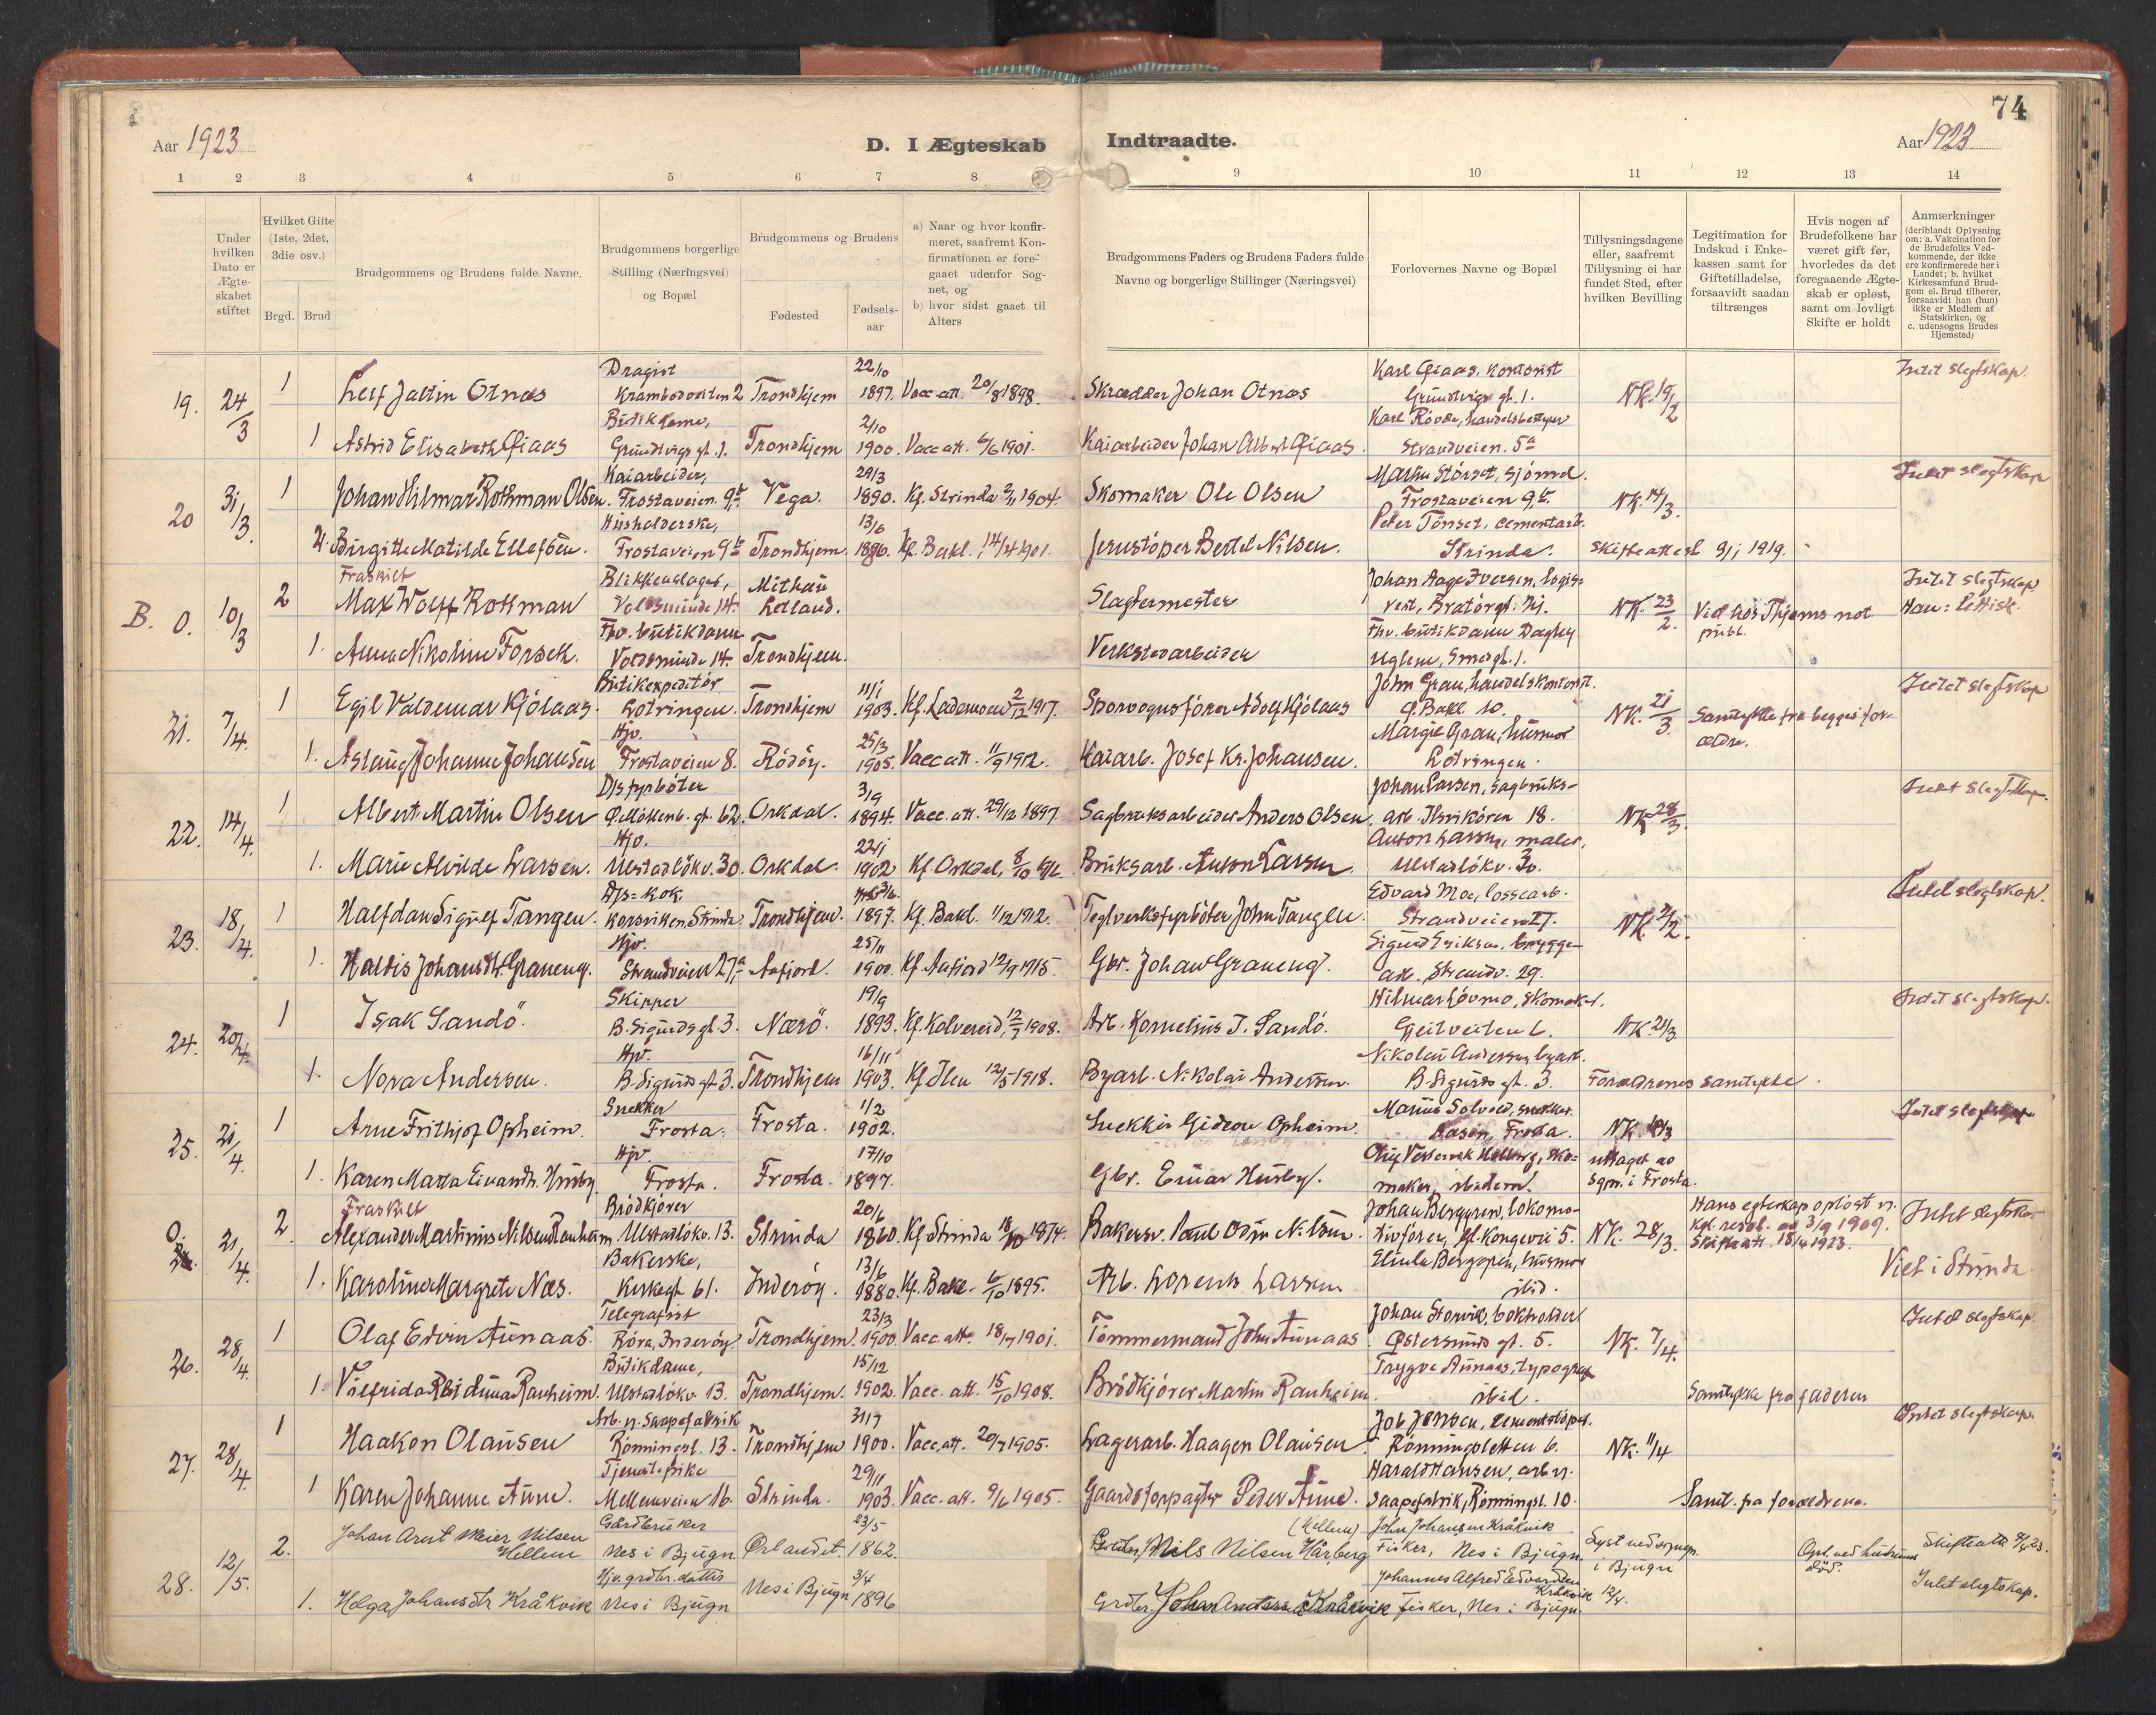 74
Aar 1923
D. I Ægteskab Indtraadte.
Aar 1923
1 2 3 4 5 6 7 8 9 10 11 12 13 14
Under hvilken Dato er Ægte-skabet stiftet
Hvilket Gifte (1ste, 2det, 3die osv.)
Brgd. Brud
Brudgommens og Brudens fulde Navne.
Brudgommens borgerlige Stilling (Næringsvei) og Bopæl
Brudgommens og Brudens
Fødested
Fødsels-aar
a) Naar og hvor konfir-meret, saafremt Kon-firmationen er fore-gaaet udenfor Sog-net, og
b) hvor sidst gaaet til Alters
Brudgommens Faders og Brudens Faders fulde Navne og borgerlige Stillinger (Næringsvei)
Forlovernes Navne og Bopæl
Tillysningsdagene eller, saafremt Tillysning ei har fundet Sted, efter hvilken Bevilling
Legitimation for Indskud i Enke-kassen samt for Giftetilladelse, forsaavidt saadan tiltrænges
Hvis nogen af Brudefolkene har været gift før, hvorledes da det foregaaende Ægte-skab er opløst, samt om lovligt Skifte er holdt
Anmærkninger (deriblandt Oplysning om: a. Vakcination for de Brudefolks Ved-kommende, der ikke ere konfirmerede her i Landet; b. hvilket Kirkesamfund Brud-gom el. Brud tilhører, forsaavidt han (hun) ikke er Medlem af Statskirken, og c. udensogns Brudes Hjemsted)
19. 24/3 1 Leif Jattin Otnæs Dragist Krambodveiten 2 Trondhjem 22/10 1897. Vacc att. 20/8 1898. Skrædder Johan Otnæs Karl Qiaas, kontorist Grundtvigs gt. 1. NK. 19/2 Intet slegtskap.
1 Astrid Elisabeth Qiaas Butikdame, Grundtvigs gt. 1. Trondhjem 2/10 1900. Vacc att. 6/6 1901. Kaiarbeider Johan Albert Qiaas. Karl Rövde, handelsbetjen Strandveien. 5a
20 31/3. 1 Johan Hilmar Rothman Olsen. Kaiarbeider, Frostaveien. 9b Vega. 29/3 1890. Kf. Strinda 2/11 1904. Skomaker Ole Olsen Martin Störset, sjömd. Frostaveien 9b. NK. 14/3. Intet slegtskap
2. Birgitte Matilde Ellefsen. Husholderske, Frostaveien 9b Trondhjem. 13/6 1886. Kf. Bakl. 14/4 1901. Jernstöper Bertel Nilsen. Peter Tönset, cementarb. Strinda. Skifteattest 9/1 1919.
B. 0. 10/3 Fraskilt 2 Max Wolff Rothman Blikkenslager, Voldsminde 14. Mithau Letland. Slagtermester Johan Aage Iversen, NK. 23/2. Intet slegtskap Han: lettisk.
1. Anna Nikoline Forsek. Fhv. butikdame Voldsminde 14. Trondhjem. Verkstedarbeider Fhv. butikdame Dagny Uglem, Smedgt. 1.
21. 7/4. 1 Egil Valdemar Kjölaas. Butikexpeditör Lotringen. Trondhjem 11/1 1903. Kf. Lademoen 2/12 1917. Sporvognsförer Adolf Kjölaas John Grau, handelskontorist. Ö. Bakl 10. NK. 21/3. Samtykke fra begges for-ældre. Intet slegtskap
1. Aslaug Johanne Johansen Hjv. Frostaveien 8. Rödöy. 25/3 1905. Vacc att. 11/9 1912. Kaiarb. Josef Kr. Johansen. Margit Grau, husmor Lotringen.
22. 14/4. 1 Albert Martin Olsen D/s fyrböter Ö. Möllenb. gt. 62. Orkdal. 3/9 1894. Vacc. att. 29/12 1897 Sagbruksarbeider Anders Olsen, Johan Larsen, sagbruks-arb. Ilsvikören 18. NK 28/3. Intet slegtskap.
1. Marie Alvilde Larsen. Hjv. Ulstadlökv. 30. Orkdal. 22/1 1902 Kf. Orkdal, 8/10 Bruksarb. Anton Larsen Anton Larsen, maler, Ulstadlökv. 30.
23. 18/4. 1 Halfdan Sigulf Tangen. D/s-kok. Korsviken Strinda Trondhjem. 1897. Kf. Bakl. 1/12 1912. Teglverksfyrböter John Tangen. Edvard Moe, lossearb. Strandveien 27. NK. 2/2. Intet slegtskap.
1. Haldis Johansdt. Graneng. Hjv. Strandveien 27a Aafjord. 25/11 1900. Kf. Aafjord 12/9 1915. Gbr. Johan Graneng. Sigurd Eriksen, brygge-arb. Strandv. 29.
24. 20/4. 1 Isak Sandö. Skipper B. Sigurds gt. 3. Nærö. 19/9 1893. Kf. Kolvereid, 12/7 1908. Arb. Kornelius J. Sandö. Hilmar Lövmo, skomaker. Geitveiten 6. NK. 21/3 Intet slegtskap.
1. Nora Andersen. Hjv. B. Sigurds gt. 3. Trondhjem 16/11 1903. Kf. Ilen 12/5 1918. Byarb. Nikolai Andersen. Nikolai Andersen, byarb. B. Sigurds gt. 3. Forældrenes samtykke.
25. 21/4. 1 Arne Frithjof Opheim. Snekker Frosta. Frosta. 1/2 1902. Snekker Gideon Opheim. Marius Solvold, snekker. Aasen, Frosta. NK Intet slegtskap
1. Karen Marta Einarsdt. Husby. Hjv. Frosta. Frosta. 17/10 1897. Gbr. Einar Husby. sko-maker, ibidem. uttaget av sgpr. i Frosta.
0. 21/4. Fraskilt 2. Alexander Martinius Nilsen Ranheim Brödkjörer Ulstadlökv. 13. Strinda 20/6 1860. Kf. Strinda 18/10 1874. Bakersv. Paul Odin Nilsen. Johan Berggren, lokomo-tivförer, Gl. Kongevei 5. NK. 28/3. Hans egteskap oplöst v. kgl. resol. av 3/9 1909. Skifteatt. 18/4 1923. Intet slegtskap
1. Karoline Margrete Næs. Bakerske, Kirkegt 61. Inderöy. 13/6 1880. Kf. Bakl. 6/10 1895. Arb. Lorents Larsen husmor ibid. Viet i Strinda
26. 28/4. 1 Olaf Edvin Aunaas. Telegrafist Röra, Inderöy. Trondhjem. 23/3 1900. Vacc. att. 18/7 1901. Tömmermand John Aunaas Johan Storvik, bokholder Östersunds gt. 5. NK. 7/4. Intet slegtskap.
1. Valfrida Ranheim. Butikdame, Ulstadlökv. 13. Trondhjem. 15/12 1902. Vacc. att. 15/10 1908. Brödkjörer Martin Ranheim. Trygve Aunaas, typograf ibid. Samtykke fra faderen
27. 28/4. 1 Haakon Olausen Arb. v. Saapefabrik Rönningsl. 13. Trondhjem 31/7 1900. Vacc. att. 20/7 1905. Lagerarb. Haagen Olausen. Job Jensen, cementstöper. Rönningsletten 6. NK. 11/4 Intet slegtskap.
1 Karen Johanne Aune. Tjenestepike Mellemveien 16. Strinda. 29/11 1903. Vacc. att. 9/6 1905. Gaardsforpagter Peder Aune. Harald Hansen, arb. v. Saapefabrik, Rönningsl. 10. Samt. fra forældrene.
28. 12/5. 2. Johan Arnt Meier Nilsen Hellem Gårdbruker Nes i Bjugn Ørlandet. 23/5 1862. Nils Nilsen Hårberg (Hellem) John Johansen Kråkvik Fisker, Nes i Bjugn. Lyst ved sognepr. i Bjugn 12/4. Opl. ved hustruens död. Skifteatt.
1. Helga Johansdtr Kråkvik Hjv. grdbr. datter Nes i Bjugn Nes i Bjugn 3/4 1896 Grdbr. Johan Kråkvik Johannes Alfred Edvardsen Kråkvik fisker, Nes i Bjugn. Intet slegtskap.